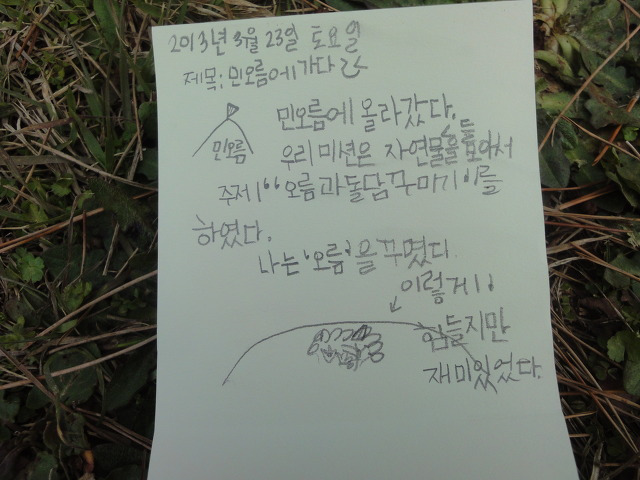 2013년 3월 23일 토요일
제목: 민오름에 가다
민오름
민오름에 올라갔다.
우리 미션은 자연물들을 모아서
주제 “오름과 돌담 꾸미기”를
하였다.
나는 '오름'을 꾸몄다.
이렇게!!
힘들지만
재미있었다.